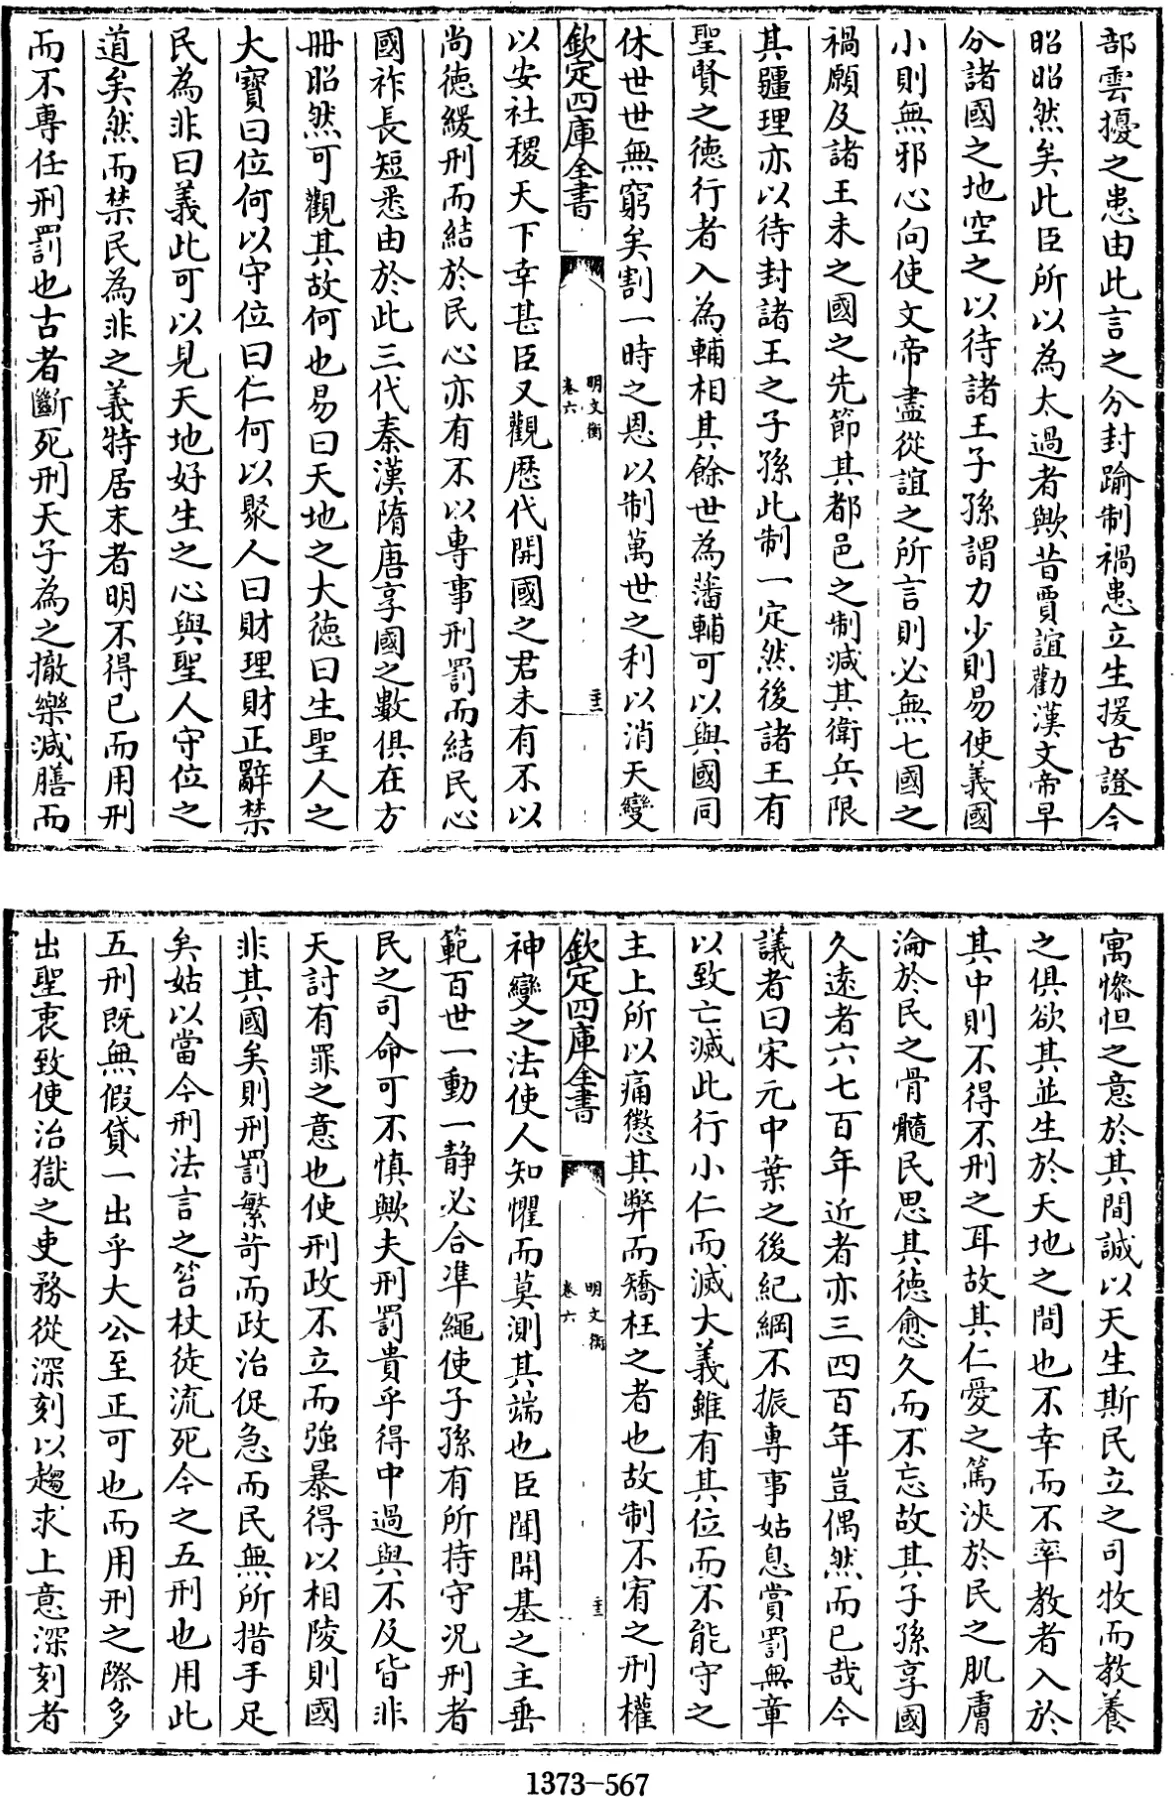 部雲擾之患由此言之分封踰制禍患立生援古證今
昭昭然矣此臣所以為太過者歟昔賈誼勸漢文帝早
分諸國之地空之以待諸王子孫謂力少則易使義國
小則無邪心向使文帝盡從誼之所言則必無七國之
禍願及諸王未之國之先節其都邑之制減其衛兵限
其疆理亦以待封諸王之子孫此制一定然後諸王有
聖賢之徳行者入為輔相其餘世為藩輔可以與國同
休世世無窮矣割一時之恩以制萬世之利以消天變
欽定四庫全書
明文衡
卷六
以安社稷天下幸甚臣又觀歴代開國之君未有不以
尚徳緩刑而結於民心亦有不以專事刑罰而結民心
國祚長短悉由於此三代秦漢隋唐享國之數俱在方
冊昭然可觀其故何也易曰天地之大徳曰生聖人之
大寳曰位何以守位曰仁何以聚人曰財理財正辭禁
民為非曰義此可以見天地好生之心與聖人守位之
道矣然而禁民為非之義特居末者明不得已而用刑
而不專任刑罰也古者斷死刑天子為之撤樂減膳而
寓慘怛之意於其間誠以天生斯民立之司牧而教養
之俱欲其並生於天地之間也不幸而不率教者入於
其中則不得不刑之耳故其仁愛之篤浹於民之肌膚
淪於民之骨髓民思其徳愈久而不忘故其子孫享國
久逺者六七百年近者亦三四百年豈偶然而已哉今
議者曰宋元中葉之後紀綱不振專事姑息賞罰無章
以致亡滅此行小仁而滅大義雖有其位而不能守之
主上所以痛懲其弊而矯枉之者也故制不宥之刑權
欽定四庫全書
明文衡
卷六
神變之法使人知懼而莫測其端也臣聞開基之主垂
範百世一動一静必合凖繩使子孫有所持守况刑者
民之司命可不慎歟夫刑罰貴乎得中過與不及皆非
天討有罪之意也使刑政不立而強暴得以相陵則國
非其國矣則刑罰繁苛而政治促急而民無所措手足
矣姑以當今刑法言之笞杖徒流死今之五刑也用此
五刑既無假貸一出乎大公至正可也而用刑之際多
出聖衷致使治獄之吏務從深刻以趨求上意深刻者
1373-567